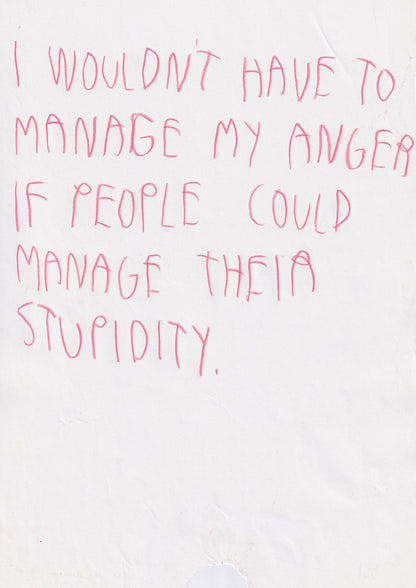 I WOULDN'T HAVE TO
MANAGE MY ANGER
IF PEOPLE COULD
MANAGE THEIR
STUPIDITY.